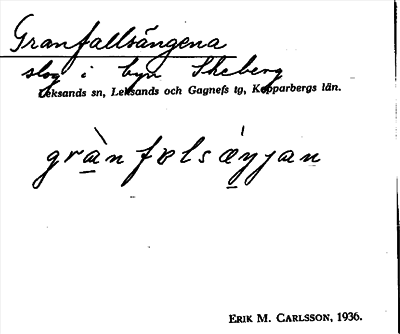 Granfallsängena
slog i byn Skeberg
Leksands sn, Leksands och Gagnefs tg, Kopparbergs län.
gràn fɐlsǽŋjan
ERIK M. CARLSSON, 1936.